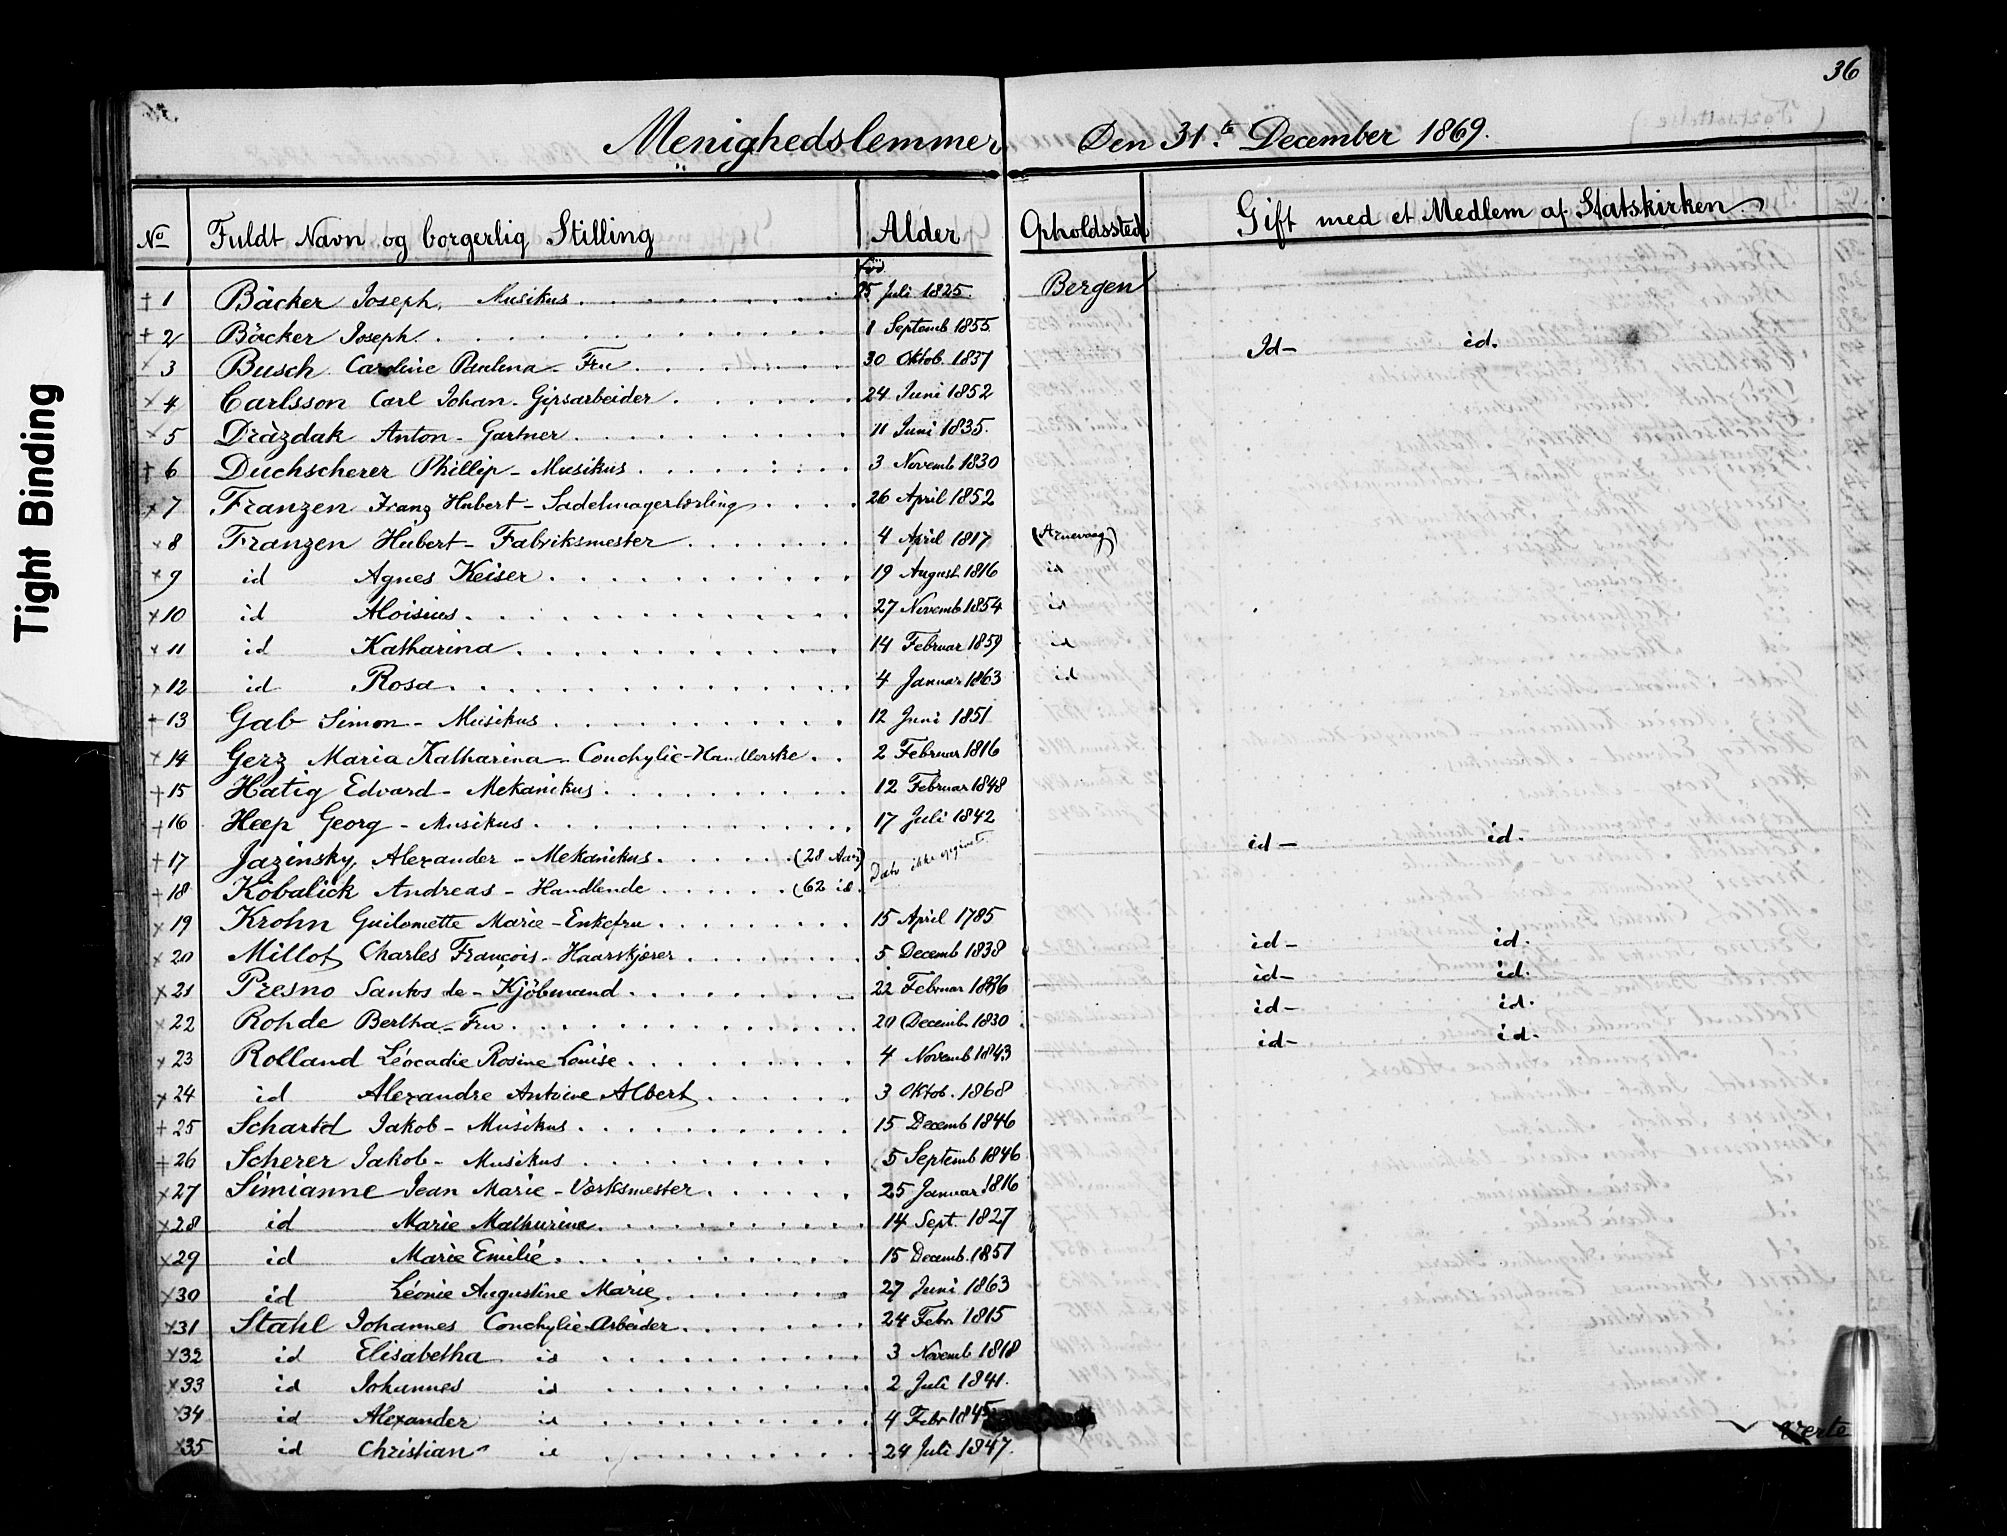 36
Tight Binding
Menighedslemmer Den 31.te December 1869.
No Fuldt Navn og borgerlig Stilling Alder Opholdssted Gift med et Medlem af Statskirken.
+ 1 Bäcker Joseph. Musikus Fød 25 Juli 1825. Bergen
+ 2 Bäcker Joseph. 1 Septemb 1855.
x 3 Busch Caroline Paulena - Fru 30 Oktob. 1837 Id - id.
x 4 Carlsson Carl Johan - Gipsarbeider 24 Juni 1852
x 5 Dràzdak Anton - Gartner 11 Juni 1835.
+ 6 Duchscherer Phillip - Musikus 3 Novemb 1830
x 7 Franzen Franz Hubert - Sadelmagerlærling 26 April 1852
x 8 Franzen Hubert - Fabriksmester 4 April 1817 (Arnevaag)
x 9 id Agnes Keiser 19 August 1816 id
x 10 id Aloisius 27 Novemb 1854 id
x 11 id Katharina 14 Februar 1859 id
x 12 id Rosa 4 Januar 1863 id
+ 13 Gab Simon - Musikus 12 Juni 1851
x 14 Gerz Maria Katharina - Conchylie-Handlerske 2 Februar 1816
+ 15 Hatig Edvard - Mekanikus 12 Februar 1848
+ 16 Heep Georg - Musikus 17 Juli 1842
+ 17 Jazinsky Alexander - Mekanikus (28 Aar) Dato ikke opgivet. id - id.
+ 18 Kobalick Andreas - Handlende (62 id.
x 19 Krohn Guilomette Marie - Enkefru 15 April 1785
x 20 Millot Charles François - Haarskjærer 5 Decemb 1838 id - id.
x 21 Presno Santos de - Kjöbmand 22 Februar 1836 id - id.
x 22 Rohde Bertha - Fru 20 Decemb 1830 id - id.
x 23 Rolland Léocadie Rosine Louise 4 Novemb 1843 id - id.
x 24 id Alexandre Antoine Albert 3 Oktob. 1868
+ 25 Schartd Jakob - Musikus 15 Decemb 1846
+ 26 Scherer Jakob - Musikus 5 Septemb 1846
x 27 Simianne Jean Marie - Værksmester 25 Januar 1816
x 28 id Marie Mathurine 14 Sept. 1827
x 29 id Marie Emilié 15 Decemb. 1851
x 30 id Léonie Augustine Marie 27 Juni 1863
x 31 Stahl Johannes Conchylie-Arbeider 24 Febr 1815
x 32 id Elisabetha id 3 Novemb 1818
x 33 id Johannes id 2 Juli 1841.
x 34 id Alexander id 4 Febr 1845
x 35 id Christian id 24 Juli 1847.
Verte